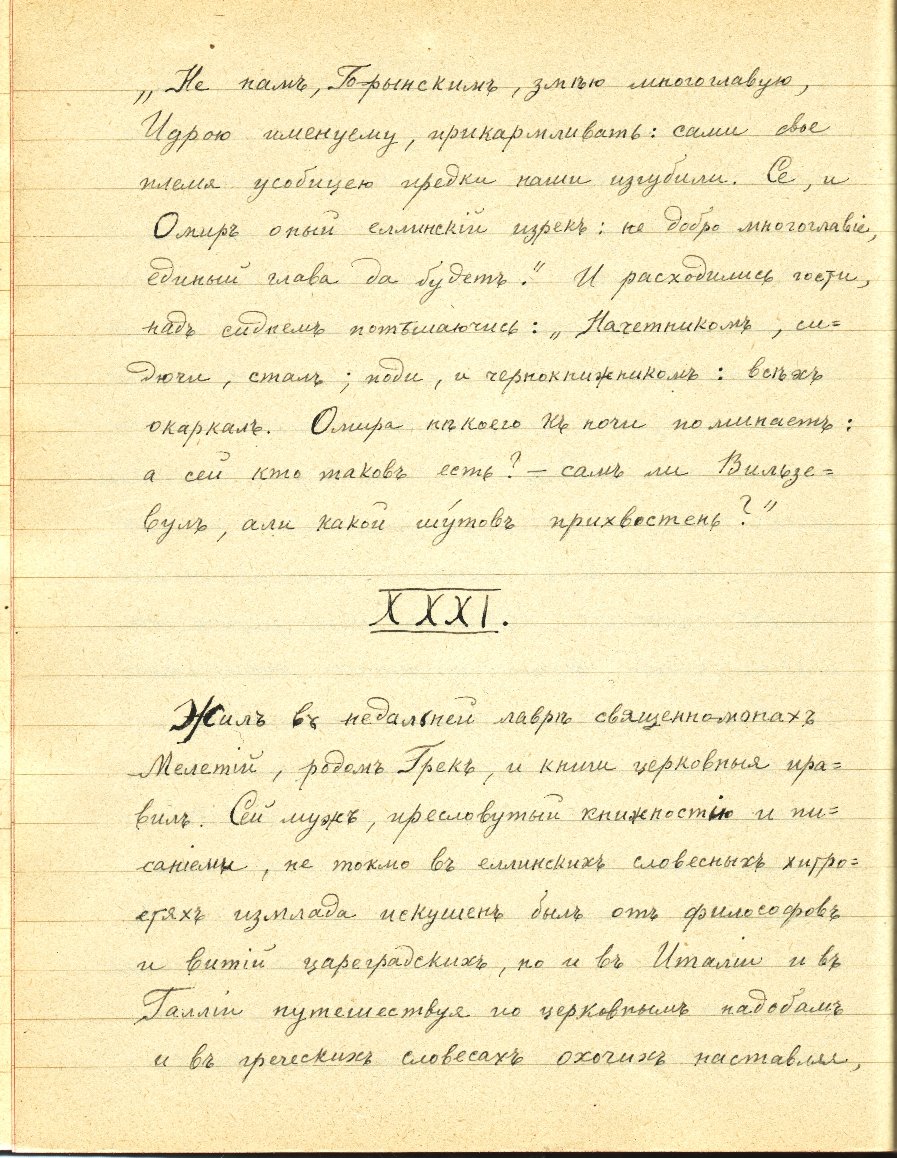 „Не намъ, Горынскимъ, змѣю многоглавую,
Идрою именуему, прикармливать: сами свое
племя усобицею предки наши изгубили. Се, и
Омиръ оный еллинскій изрекъ: не добро многоглавіе,
единый глава да будетъ.“ И расходились гости,
надъ сиднемъ потѣшаючись: „Начетникомъ, си=
дючи, сталъ; поди, и чернокнижникомъ: всѣхъ
окаркалъ. Омира нѣкоего къ ночи поминаетъ:
а сей кто таковъ есть? — самъ ли Вильзе=
вулъ, али какой шу́товъ прихвостень?“
XXXI.
Жилъ въ недальней лаврѣ священномонахъ
Мелетій, родомъ Грекъ, и книги церковныя пра=
вилъ. Сей мужъ, пресловутый книжностію и пи=
саніемъ, не токмо въ еллинскихъ словесныхъ хитро=
стяхъ измлада искушенъ былъ отъ философовъ
и витій цареградскихъ, но и въ Италіи и въ
Галліи путешествуя по церковнымъ надобамъ
и въ греческихъ словесахъ охочихъ наставляя,